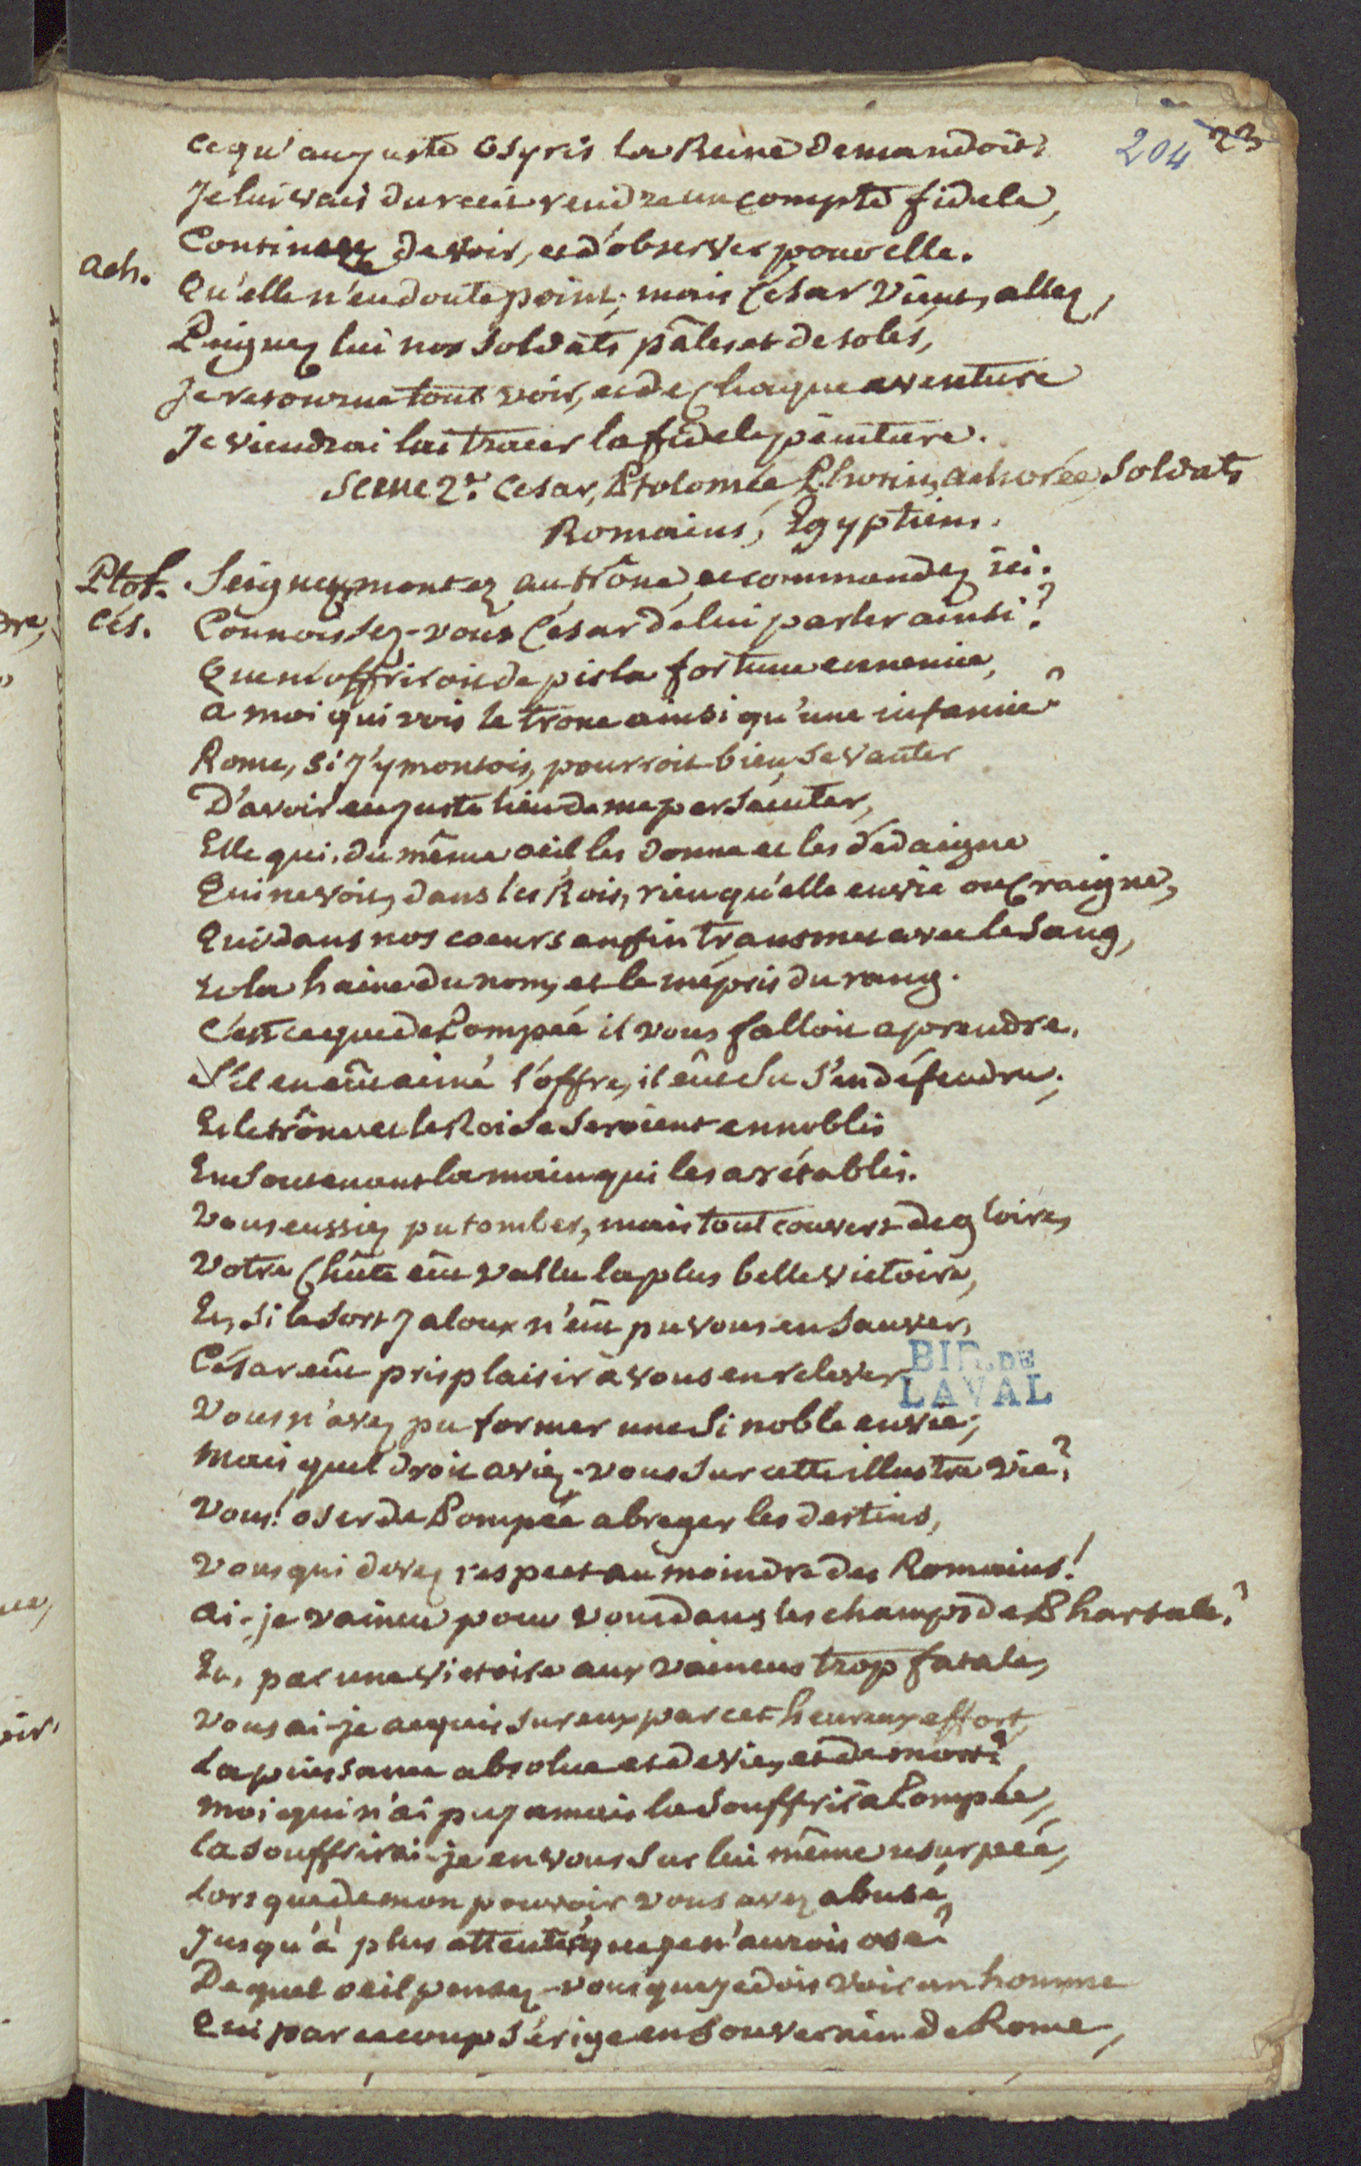 204 23
Ce qu'auguste Osyris la Reine demandoit;
Je lui vais du recit rendre un compte fidele,
Continuez de voir, et d'observer pour elle.
Ach. Qu'elle n'en doute point; mais César vient, allez,
Peignez lui nos soldats pâles et desolés,
Je retourne tout voir, et de chaque aventure
Je viendrai lui tracer la fidele peinture.
Scene 2e. Cesar, Ptolomée, Photin, achorée, Soldats
Romains, Egyptiens.
Ptol. Seigneur, montez au trône, et commandez ici.
Cés. Connoissez-vous César de lui parler ainsi?
Que m'offriroit de pis la fortune ennemie,
a moi qui vois le trone ainsi qu'une infamie?
Rome, si j'y montois, pourroit bien se vanter
D'avoir eu juste lieu de me persécuter,
Elle qui, du même oeil les donne et les dédaigne
Qui ne voit, dans les Rois, rien qu'elle envie ou Craigne,
Qui dans nos coeurs enfin transmet avec le sang,
Et la haine du nom, et le mépris du rang.
C'est ce que de Pompée il vous falloit aprendre.
S'il en eût aimé l'offre, il eût su s'en défendre;
Et le trône et le Roi se seroient ennoblis
En soutenant la main qui les a rétablis.
Vous eussiez pu tomber, mais tout couvert de gloire,
Votre Chûte eût vallu la plus belle victoire,
Et, si le sort jaloux n'eût pu vous en sauver,
César eût pris plaisir à vous en relever
BIB. DE
LAVAL
Vous n'avez pu former une si noble envie;
Mais quel droit aviez-vous sur cette illustre vie?
Vous! oser de Pompée abreger les destins,
Vous qui devez respect au moindre des Romains!
Ai-je vaincu pour vous dans les champs de Pharsale?
Et, par une victoire aux vaincus trop fatale,
Vous ai-je acquis sur eux par cet heureux effort,
La puissance absolue et de vie, et de mort?
Moi qui n'ai pu jamais la souffrir à Pompée,
La souffrirai-je en vous sur lui même usurpée,
Lors que de mon pouvoir vous avez abusé,
Jusqu'à plus attenter, que je n'aurois osé?
De quel oeil pensez-vous que je dois voir un homme
Qui par ce coup s'érige en souverain de Rome,